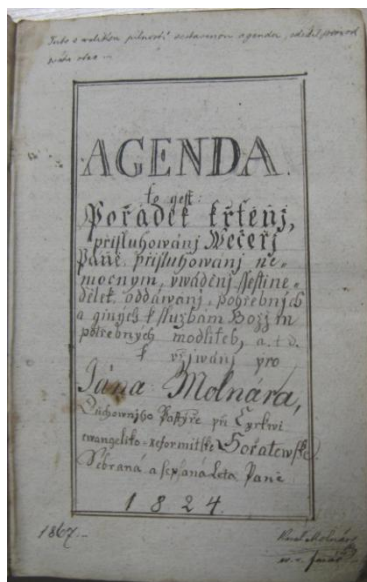 Tuto s velikou pilností sestavenou agendu, odešel
AGENDA.
to gest:
Pořádek křtěnj,
přisluhowánj Wečeřj
Páně, přisluhowánj ne-
mocným, vwáděnj ssestine-
dělek, oddáwanj, pohřebných
a giných k službám Božjm
potřebných modliteb, a. t. d.
k vžjwánj pro
Jána Molnára,
Duchownjho Pastýře při Cyrkwi
ewangelicko-reformitské
Sebraná a sepsaná Léta Páně
1824.
1867.
Karel Molnár